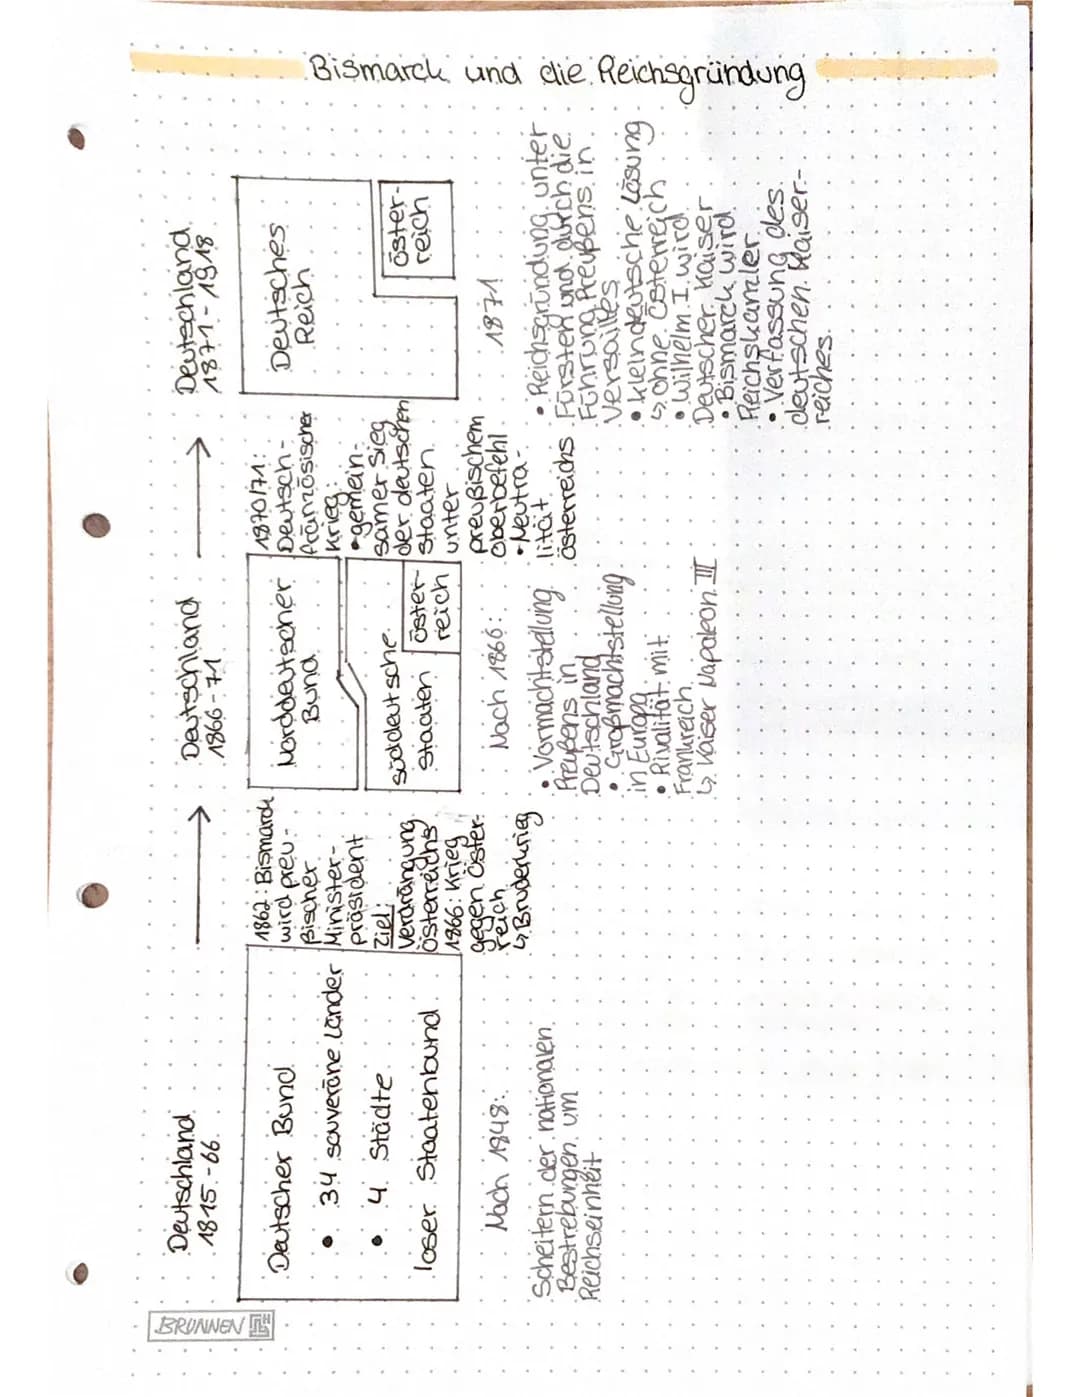 Bismarck und die Reichsgründung
Deutschland
1815-66
Deutscher Bund
• 34 souveräne Länder
• 4 Städte
loser Staatenbund
Nach 1848:
Scheitern der nationalen
Bestrebungen um
Reichseinheit
1862: Bismarck
wird preu-
ßischer
Minister-
präsident
Ziel:
Verdrängung
Österreichs
1866: Krieg
gegen Öster-
reich
↳ Bruderkrieg
Deutschland
1866-71
Norddeutscher
Bund
süddeutsche
Staaten
Öster-
reich
Nach 1866:
• Vormachtstellung
Preußens in
Deutschland
• Großmachtstellung
in Europa
• Rivalität mit
Frankreich
↳ Kaiser Napoleon III
1870/71:
Deutsch-
französischer
Krieg:
• gemein-
samer Sieg
der deutschen
Staaten
unter
preußischem
Oberbefehl
• Neutra-
lität
Österreichs
Deutschland
1871-1918
Deutsches
Reich
Öster-
reich
1871
• Reichsgründung unter
Fürsten und durch die
Führung Preußens in
Versailles
• kleindeutsche Lösung
↳ ohne Österreich
• Wilhelm I. wird
Deutscher Kaiser
• Bismarck wird
Reichskanzler
• Verfassung des
deutschen Kaiser-
reiches
BRUNNEN